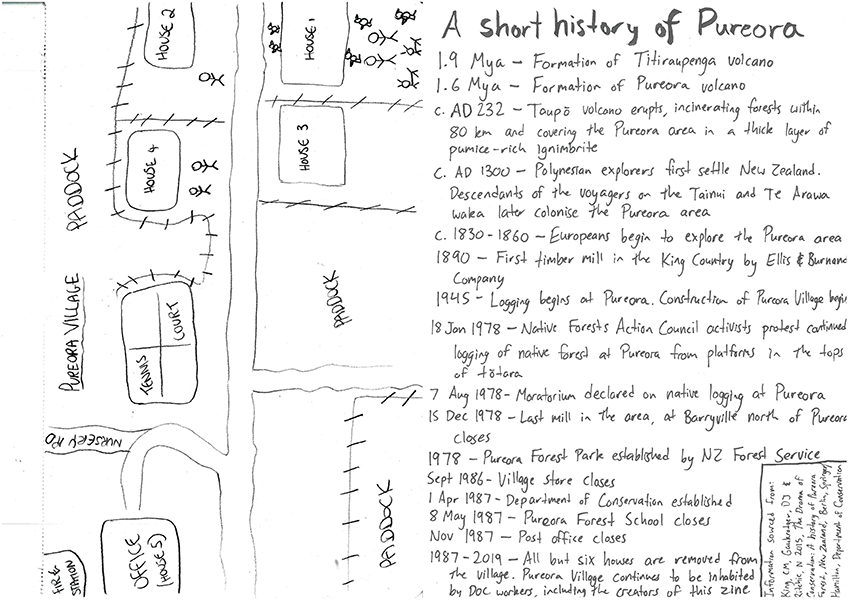 HOUSE 2
HOUSE 1
HOUSE 4
HOUSE 3
PADDOCK
PUREORA VILLAGE
TENNIS
COURT
PADDOCK
NURSERY RD
PADDOCK
OFFICE
(HOUSE 5)
FIRE
STATION
A short history of Pureora
1.9 Mya – Formation of Titiraupenga volcano
1.6 Mya – Formation of Pureora volcano
c. AD 232 – Taupō volcano erupts, incinerating forests within
80 km and covering the Pureora area in a thick layer of
pumice-rich ignimbrite
C. AD 1300 – Polynesian explorers first settle New Zealand.
Descendants of the voyagers on the Tainui and Te Arawa
waka later colonise the Pureora area
c. 1830-1860 – Europeans begin to explore the Pureora area
1890 – First timber mill in the King Country by Ellis & Burnand
Company
1945 - Logging begins at Pureora. Construction of Pureora Village begin
18 Jan 1978 – Native Forests Action Council activists protest continued
logging of native forest at Pureora from platforms in the tops
of tōtara
7 Aug 1978 - Moratorium declared on native logging at Pureora
15 Dec 1978 - Last mill in the area, at Barryville north of Pureora
closes
1978 - Pureora Forest Park established by NZ Forest Service
Sept 1986 - Village store closes
1 Apr 1987 - Department of Conservation established
8 May 1987 - Pureora Forest School closes
Nov 1987 - Post office closes
1987-2019 - All but six houses are removed from
the village. Pureora Village continues to be inhabited
by DOC workers, including the creators of this zine
Information sourced from:
King, CM, Gaukrodger, DJ &
Ritchie, N 2015, The Drama of
Conservation: A history of Pureora
Forest, New Zealand, Berlin, Springer
Hamilton, Department of Conservation